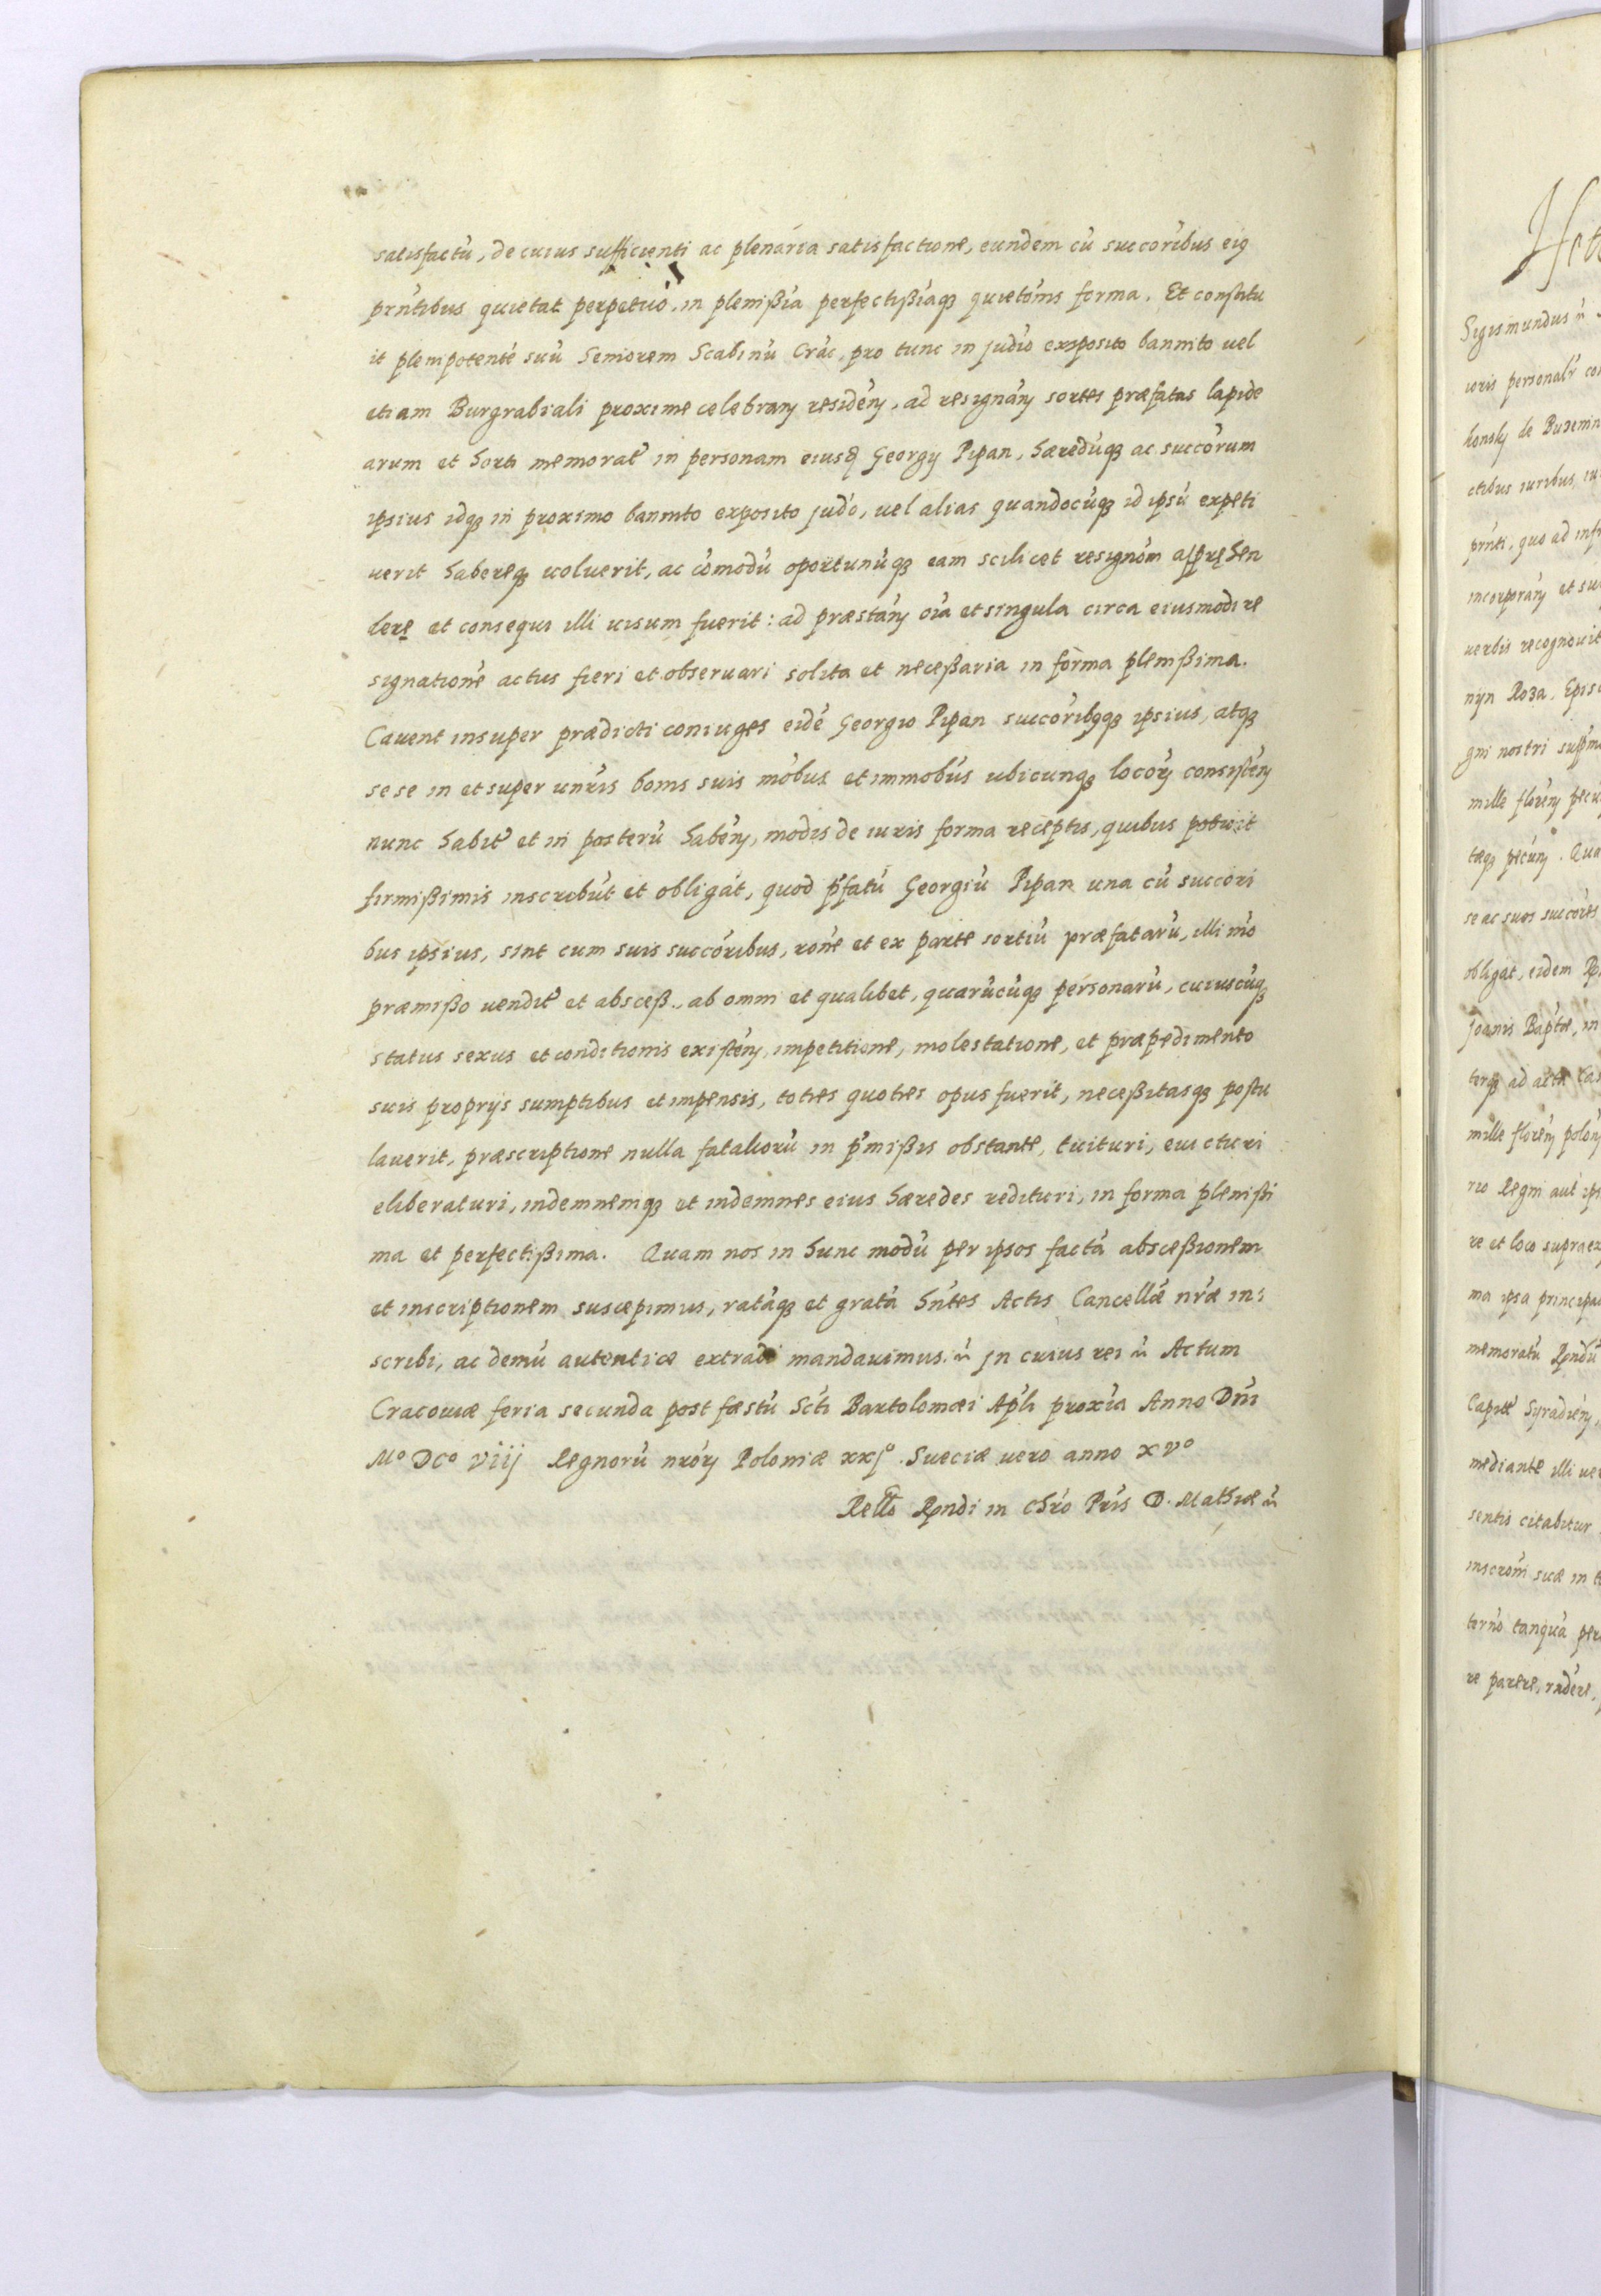 satisfactũ, de cuius sufficienti ac plenaria satisfactione, eundem cũ succoribus eiꝰ
prntibus quietat perpetuo, in plenißia perfectißiaqꝫ quietonis forma. Et constitu
it plenipotentẽ suũ Seniorem Scabinũ Crac, pro tunc in judio exposito bannito vel
etiam Burgrabiali proxime celebrań residẽń, ad resignań sortes præfatas lapide
arum et horti memorat in personam eiusd Georgij Pipan, hæredũqꝫ ac succorum
ipsius idqꝫ in proximo bannito exposito judo, vel alias quandocũqꝫ id ipsũ expeti
verit habereqꝫ voluerit, ac cõmodũ oportunũqꝫ eam scilicet resignõm appręhen
dere et consequi illi visum fuerit: ad præstań oĩa et singula circa eiusmodi re
signationẽ actus fieri et observari solita et neceßaria in forma plenißima.
Cavent insuper prædicti coniuges eidẽ Georgio Pipan succoribqꝫ ipsius, atqꝫ
sese in et super unris bonis suis mobus et immobus ubicunqꝫ locorꝫ consisteń
nunc habit et in posterũ habeń, modis de iuris forma receptis, quibus potuit
firmißimis inscribũt et obligãt, quod pfatũ Georgiũ Pipan una cũ succori
bus ipsius, sint cum suis succoribus, rone et ex parte sortiũ præfatarũ, illi mõ
præmißo vendit et absceß., ab omni et qualibet, quarũcũqꝫ personarũ, cuiuscũqꝫ
status sexus et conditionis existeń, impetitione, molestatione, et præpedimento
suis proprijs sumptibus et impensis, toties quoties opus fuerit, neceßitasqꝫ postu
laverit, præscriptione nulla fataliorũ in pmißis obstante, tuituri, evicturi
eliberaturi, indemnemqꝫ et indemnes eius hæredes redituri, in forma plenißi
ma et perfectißima. Quam nos in hunc modũ per ipsos factã absceßionem
et inscriptionem suscepimus, ratãqꝫ et gratã hntes Actis Cancellæ nræ in:
scribi, ac demũ autentice extradi mandavimus. ũ jn cuius rei ũ Actum
Cracoviæ feria secunda post fæstũ Scti Bartolomæi Apli proxia Anno Dni
Mº DCº viij Regnorũ nrorꝫ Poloniæ xxjº. Sueciæ vero anno xvº
Rello Rndi in Chro Pris D. Mathiæ ũ
Sigismundus ũ
ioris personalr
de Buxenin
ctibus iuribus
prnti, quo ad
incorporań et
verbis recognovit
nijn Roza, Epis
gni nostri
mille floreń
tæqꝫ pecuń. Qua
se ac suos succores
obligat, eidem
Joanis Baptæ, in
torqꝫ ad acta
mille floreń
rio Regni aut
re et loco supra
ma ipsa principa
memoratũ Rndũ
Capit Syradień
mediante illi
sentis citabitur
inscrõm suæ in
terno tanquã
re parere,